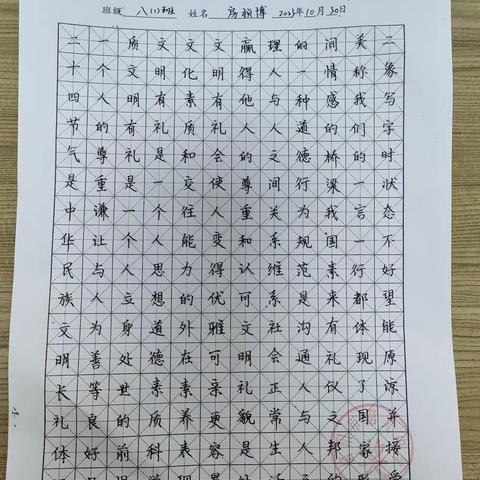 班级 八(1)班 姓名 房颖博 2023年10月30日
二十四节气是中华民族文明长礼体
一个人的尊重谦让与人为善等良好
质文明有礼是一个人立身处世的前
文明有礼是一个人思想道德素质科
文化素质和交往能力的外在素养表
文明有礼会使人变得优雅可亲更容
赢得他人的尊重和认可文明礼貌是
理人与人之间关系维系社会正常生
的一种道德行为规范是沟通人与人
间情感的桥梁我国素来有礼仪之邦
美称我们的一言一行都体现了国家
二象写字时状态不好望能原谅并接受